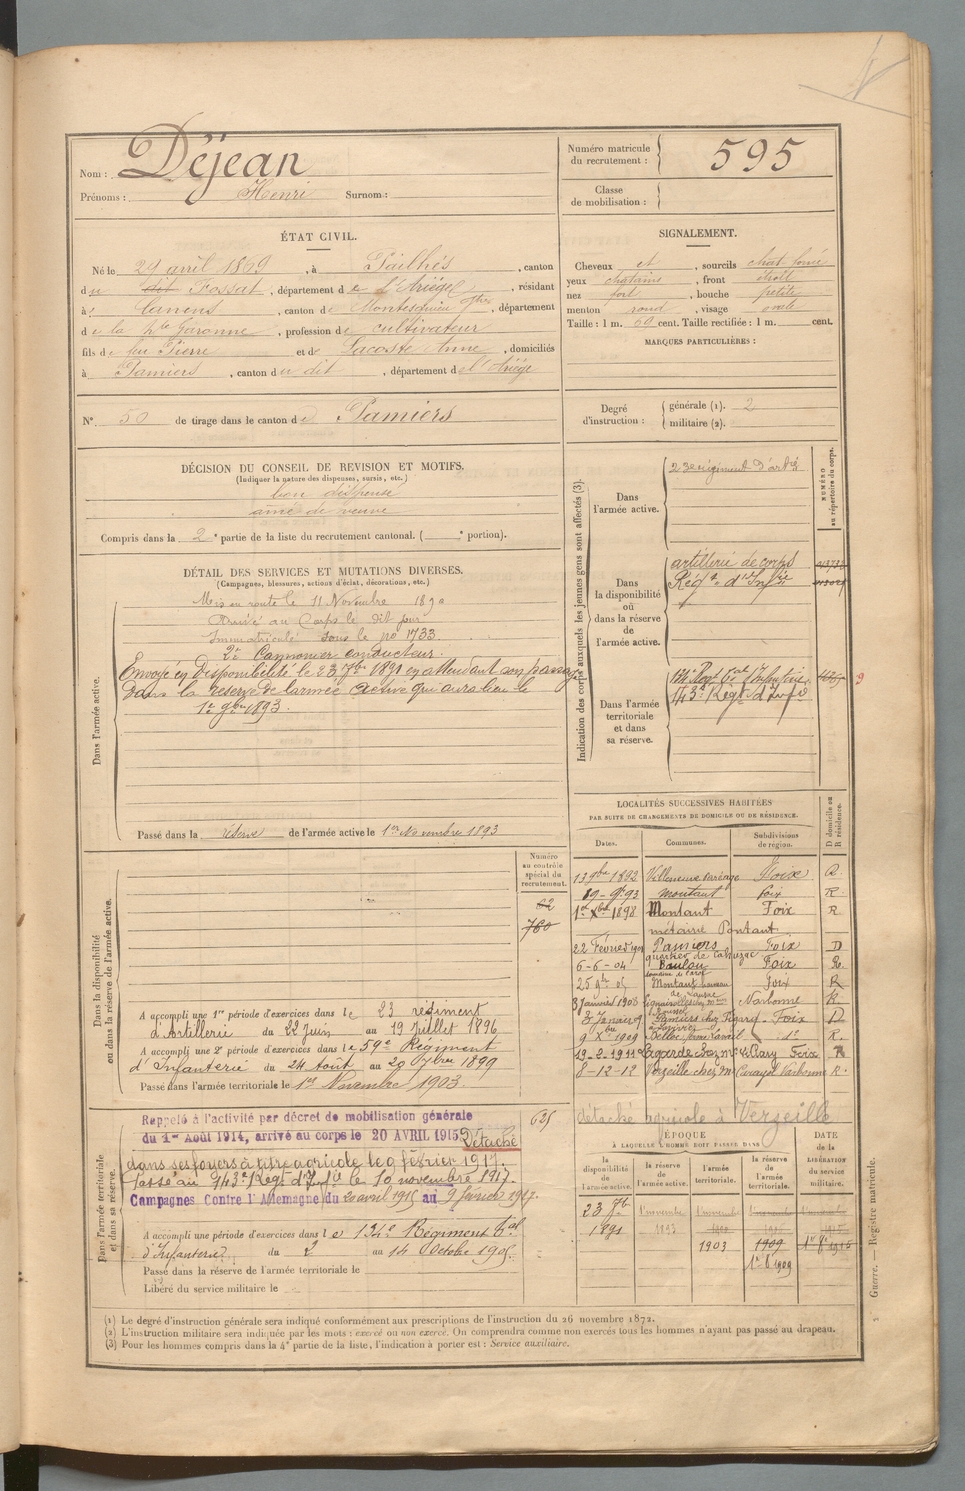 Nom : Déjean
Prénoms : Henri Surnom :
Numéro matricule du recrutement : 595
Classe de mobilisation :
ÉTAT CIVIL.
Né le 29 avril 1869, à Pailhés, canton
du dit Fossat, département de l'Ariége, résidant
à Canens, canton de Montesquieu, département
de la Hte Garonne, profession de cultivateur
fils de feu Pierre et de Lacoste Anne, domiciliés
à Pamiers, canton du dit, département de l'Ariége
SIGNALEMENT.
Cheveux et, sourcils chat. foncé
yeux chatains, front étroit
nez fort, bouche petite
menton rond, visage ovale
Taille : 1 m. 69 cent. Taille rectifiée : 1 m. cent.
MARQUES PARTICULIÈRES :
N° 50 de tirage dans le canton de Pamiers
Degré d'instruction : générale (1). 2
militaire (2).
DÉCISION DU CONSEIL DE REVISION ET MOTIFS.
(Indiquer la nature des dispenses, sursis, etc.)
bon dispensé
aîné de veuve
Compris dans la 2e partie de la liste du recrutement cantonal. ( e portion).
DÉTAIL DES SERVICES ET MUTATIONS DIVERSES.
(Campagnes, blessures, actions d'éclat, décorations, etc.)
Dans l'armée active.
Mis en route le 11 Novembre 1890
Arrivé au Corps le dit jour
Immatriculé sous le no 1733.
2e Cannonier conducteur.
Envoyé en disponibilité le 23 7bre 1891 en attendant son passage
dans la réserve de l'armée active qui aura lieu le
1er 9bre 1893.
Passé dans la réserve de l'armée active le 1er Novembre 1893
Indication des corps auxquels les jeunes gens sont affectés (3).
NUMÉRO au répertoire du corps.
Dans l'armée active.
23e régiment d'artie
Dans la disponibilité ou dans la réserve de l'armée active.
artillerie de corps
Régt d'Infie
Dans l'armée territoriale et dans sa réserve.
134e Regt tal d'Infanterie
143e Régt d'Infie
LOCALITÉS SUCCESSIVES HABITÉES
PAR SUITE DE CHANGEMENTS DE DOMICILE OU DE RÉSIDENCE.
Dates. Communes. Subdivisions de région. D domicile ou R résidence.
13 9bre 1892 Villeneuve Paréage Foix R.
19 - 9bre 93 Montaut foix R
1er Xbre 1898 Montaut Foix R
métairie Pontaut
22 Février Pamiers Foix D
6-6-04 Baulou Foix R.
Montaut Foix R
3 Janvier 1908 Narbonne R.
Pamiers chez Foix D
9 Xbre 1909 R.
19-2-1911 Lagarde chez Mr Foix R
8-12-12 Verzeille chez Mr Narbonne R.
détaché agricole à Verzeille
Numéro au contrôle spécial du recrutement.
760
Dans la disponibilité ou dans la réserve de l'armée active.
A accompli une 1re période d'exercices dans le 23 régiment
d'Artillerie du 22 Juin au 19 Juillet 1896
A accompli une 2e période d'exercices dans le 59e Régiment
d'Infanterie du 24 Août au 20 7bre 1899
Passé dans l'armée territoriale le 1er Novembre 1903.
Dans l'armée territoriale et dans sa réserve.
Rappelé à l'activité par décret de mobilisation générale
du 1er Août 1914, arrivé au corps le 20 AVRIL 1915 Détaché
dans ses foyers à titre agricole le 9 février 1917.
Passé au 143e Régt d'Infie le 10 novembre 1917.
Campagnes Contre l'Allemagne du 20 avril 1915 au 9 février 1917.
A accompli une période d'exercices dans le 134e Régiment tal
d'Infanterie du 2 au 14 Octobre 1905.
Passé dans la réserve de l'armée territoriale le
Libéré du service militaire le
ÉPOQUE
À LAQUELLE L'HOMME DOIT PASSER DANS
DATE de la LIBÉRATION du service militaire.
la disponibilité de l'armée active. la réserve de l'armée active. l'armée territoriale. la réserve de l'armée territoriale.
23 7bre 1er novembre 1er novembre 1er novembre
1891 1893
1903 1909
1er 8bre 1909
Guerre. — Registre matricule.
(1) Le degré d'instruction générale sera indiqué conformément aux prescriptions de l'instruction du 26 novembre 1872.
(2) L'instruction militaire sera indiquée par les mots : exercé ou non exercé. On comprendra comme non exercés tous les hommes n'ayant pas passé au drapeau.
(3) Pour les hommes compris dans la 4e partie de la liste, l'indication à porter est : Service auxiliaire.